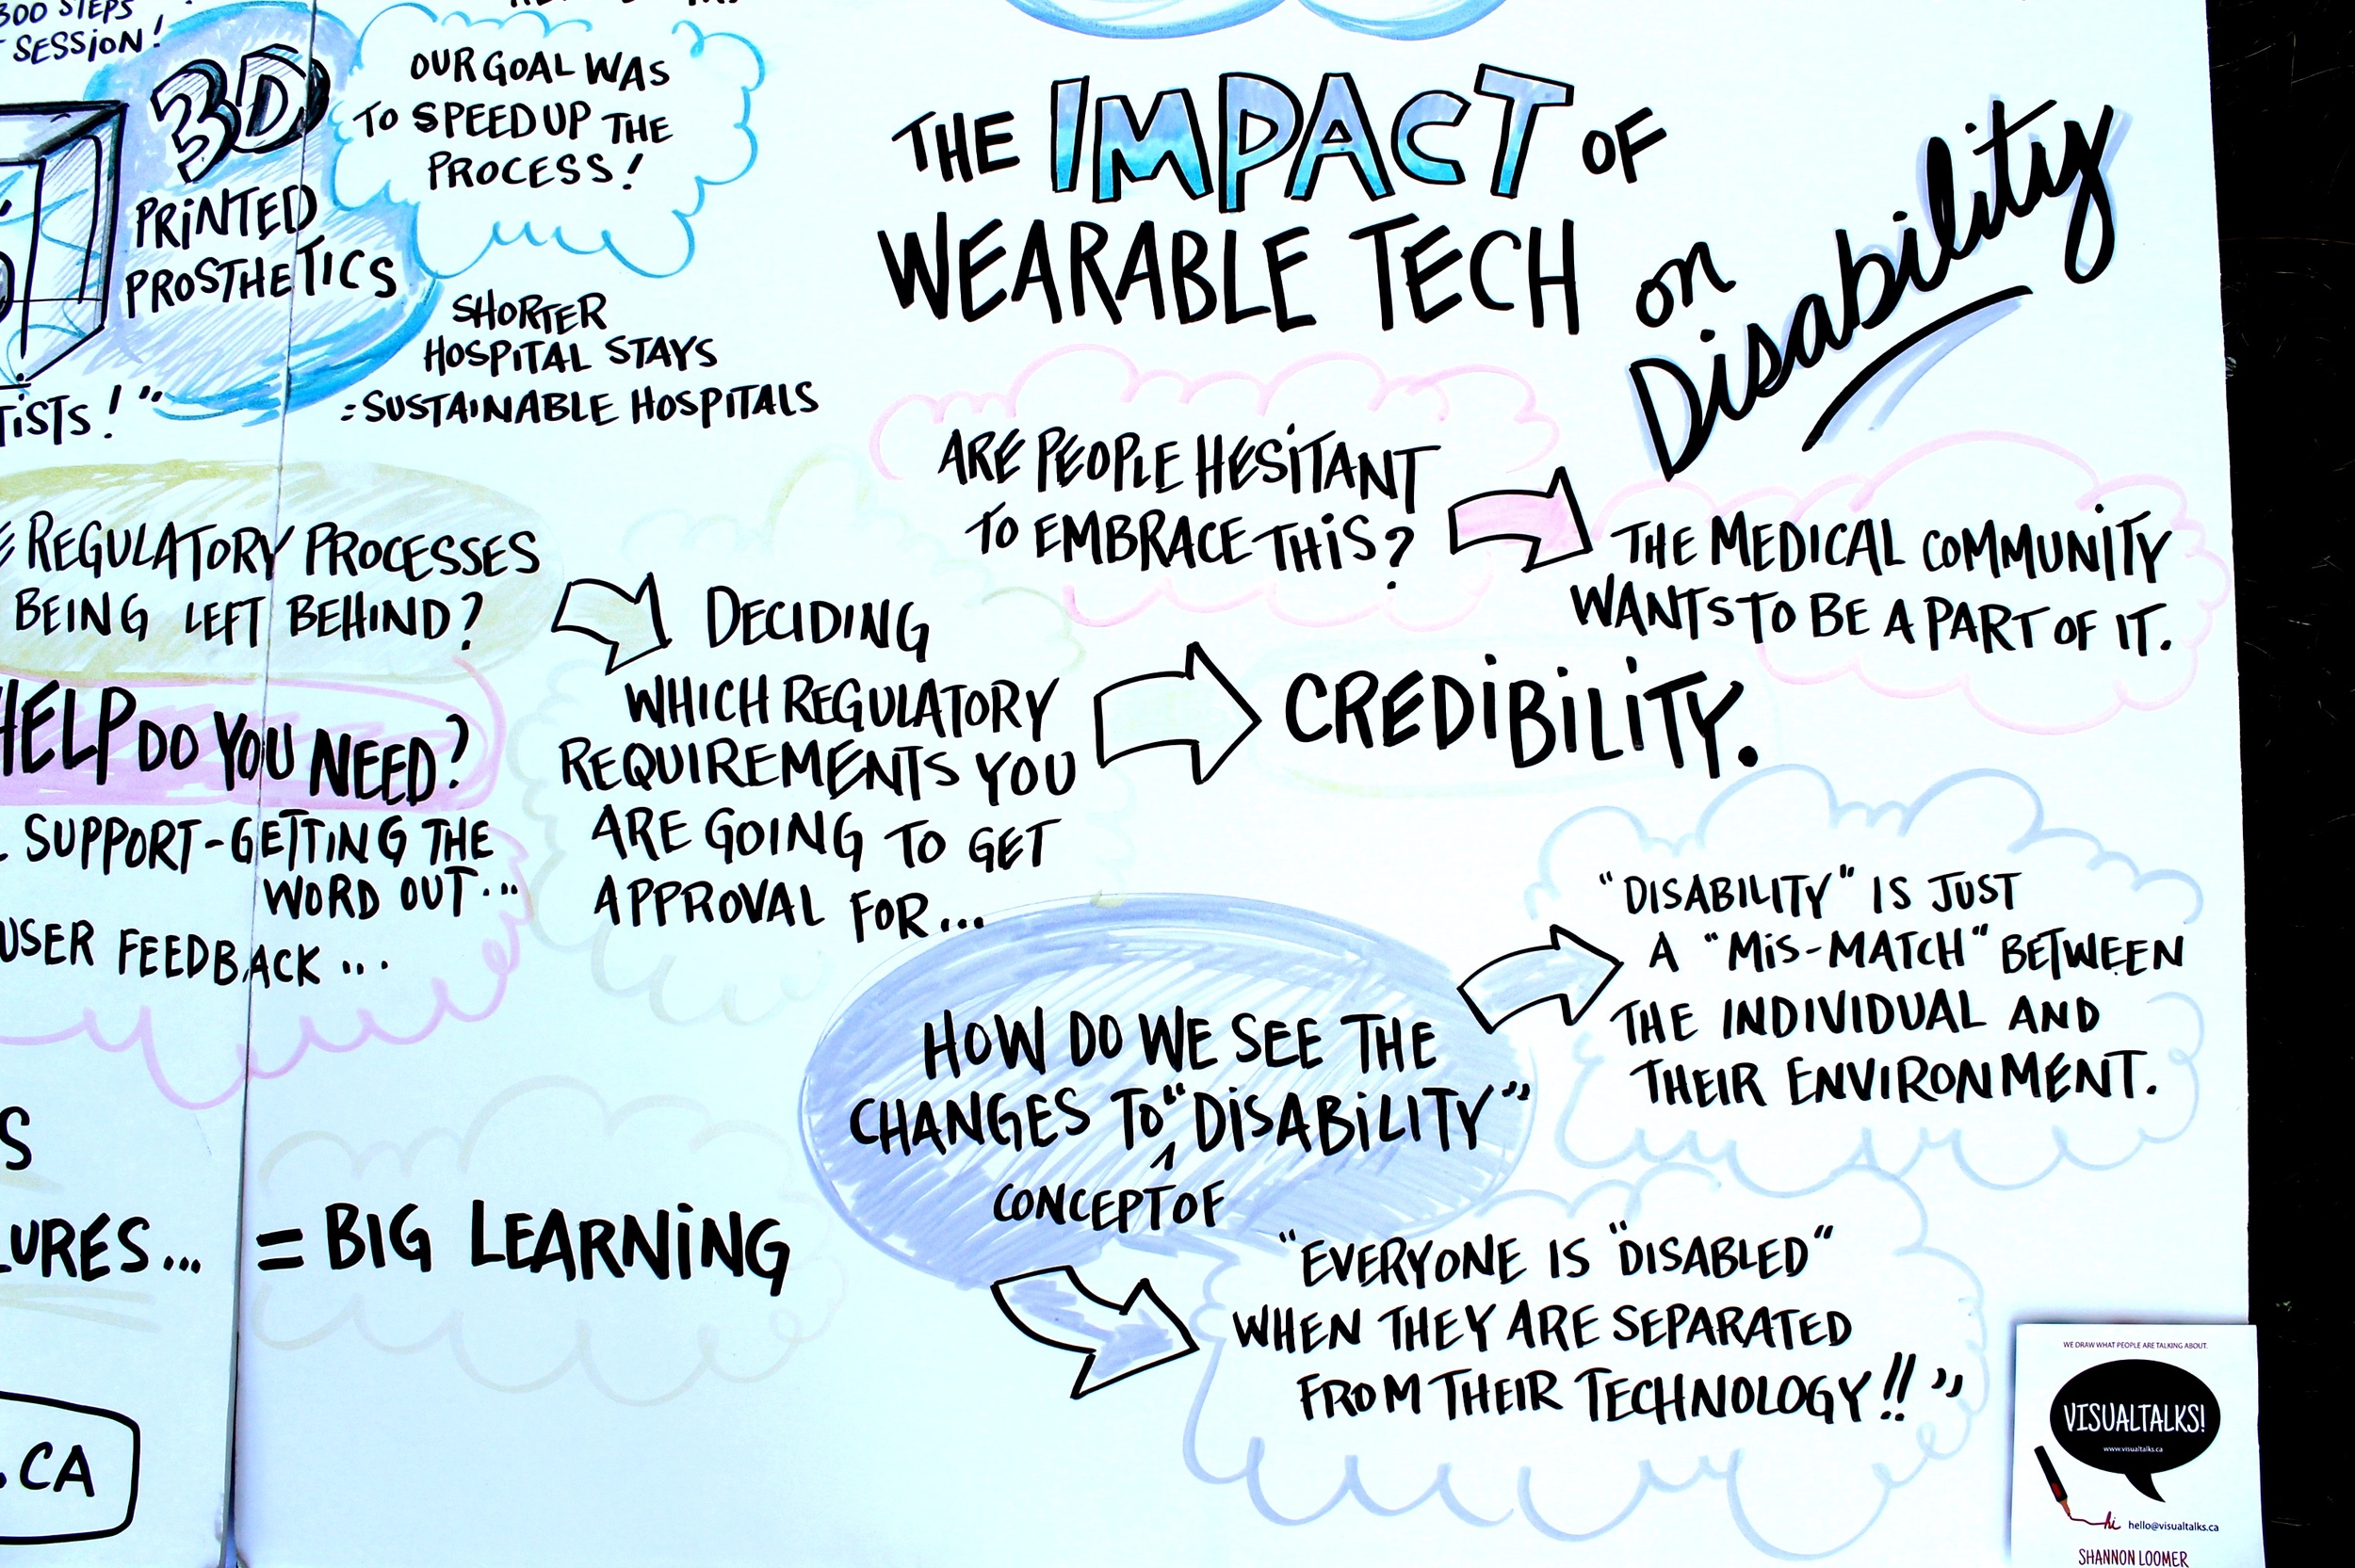 300 STEPS
SESSION!
3D
PRINTED
PROSTHETICS
OUR GOAL WAS
TO SPEED UP THE
PROCESS!
SHORTER
HOSPITAL STAYS
=SUSTAINABLE HOSPITALS
TISTS!"
THE IMPACT OF
WEARABLE TECH
on
Disability
ARE PEOPLE HESITANT
TO EMBRACE THIS?
THE MEDICAL COMMUNITY
WANTS TO BE A PART OF IT.
REGULATORY PROCESSES
BEING LEFT BEHIND?
DECIDING
WHICH REGULATORY
REQUIREMENTS YOU
ARE GOING TO GET
APPROVAL FOR...
CREDIBILITY.
HELP DO YOU NEED?
SUPPORT-GETTING THE
WORD OUT...
USER FEEDBACK...
HOW DO WE SEE THE
CHANGES TO "DISABILITY"
CONCEPT OF
"DISABILITY" IS JUST
A "MIS-MATCH" BETWEEN
THE INDIVIDUAL AND
THEIR ENVIRONMENT.
"EVERYONE IS "DISABLED"
WHEN THEY ARE SEPARATED
FROM THEIR TECHNOLOGY!!"
S
LURES... = BIG LEARNING
.CA
WE DRAW WHAT PEOPLE ARE TALKING ABOUT.
VISUALTALKS!
www.visualtalks.ca
hi hello@visualtalks.ca
SHANNON LOOMER